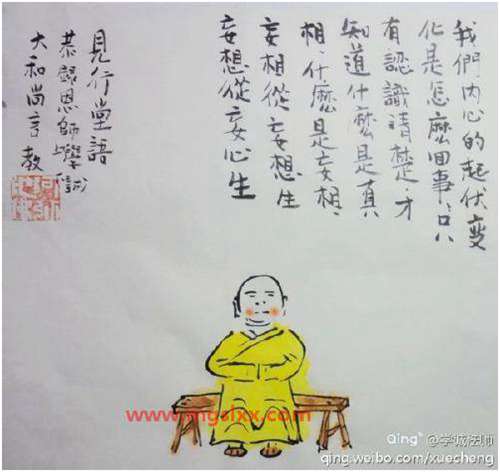 我們內心的起伏變
化是怎麼回事，只
有認識清楚，才
知道什麼是真
相，什麼是妄相，
妄相從妄想生
妄想從妄心生
見行堂語
恭錄恩師學誠
大和尚言教
www.mgslxx.com
Qing @学诚法师
qing.weibo.com/xuecheng